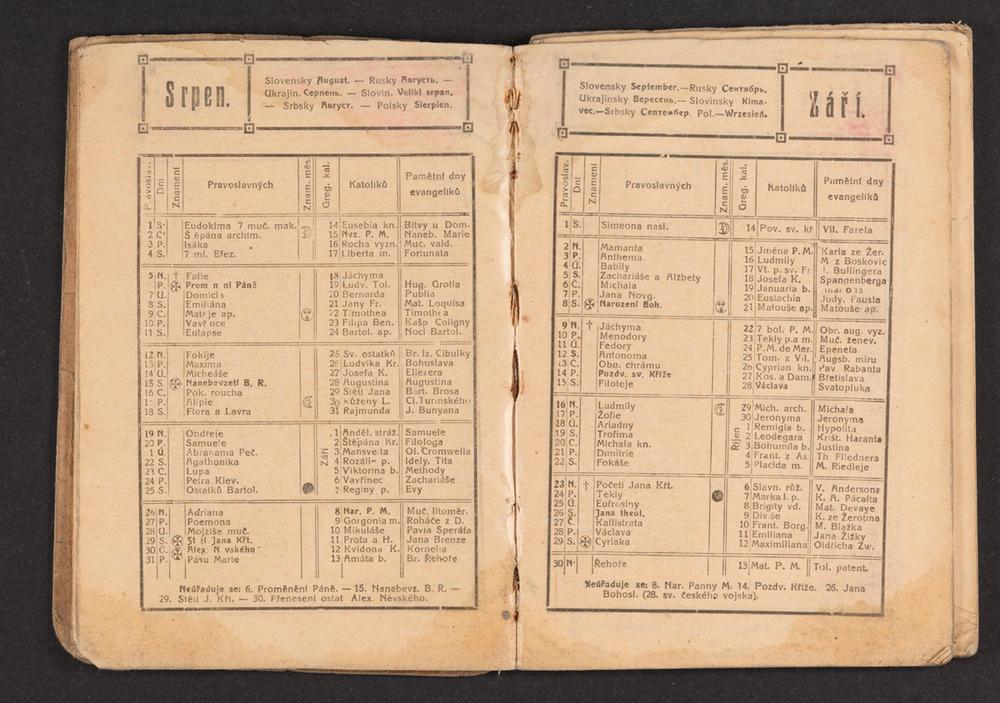 Srpen.
Slovensky August. — Rusky Августъ. —
Ukrajin. Серпень. — Slovin. Veliki srpan.
— Srbsky Август. — Polsky Sierpień.
Pravoslav. Dni Znamení Pravoslavných Znam. měs. Greg. kal. Katolíků Pamětní dny evangelíků
1 S. Eudokima 7 muč. mak. 14 Eusebia kn. Bitvy u Dom.
2 Č. archim. 15 Nvz. P. M. Naneb. Marie
3 P. Isáka 16 Rocha vyzn. Muč. vald.
4 S. 7 ml. Efez. 17 Liberta m. Fortunata
5 N. † Faſie 18 Jáchyma
P. Prom Páně 19 Ludv. Tol. Hug. Grotia
7 Ú. 20 Bernarda Publia
8 S. Emiliána 21 Jany Fr. Mat. Loquisa
9 Č. ap. 22 Timothea
10 P. 23 Filipa Ben. Kašp Coligny
11 S. Eulapse 24 Bartol. ap. Noci Bartol.
12 N. Fokije 25 Sv. ostatků Br. Iz. Cibulky
13 P. Maxima 26 Ludvíka Kr. Bohuslava
14 Ú. Micheáše 27 Josefa K. Eliezera
15 S. Nanebevzetí B. R. 28 Augustina Augustina
16 Č. Pok. roucha 29 Stětí Jana Bart. Brosa
P. Alipie 30 Růženy L. Cl. Turinského
18 S. Flora a Lavra 31 Rajmunda J. Bunyana
Září
19 N. Ondřeje 1 Anděl. stráž. Samuele
20 P. Samuele 2 Štěpána Kr. Filologa
Ú. Abrahama Peč. 3 Mansveita Ol. Cromwella
22 S. Agathonika 4 Rozálie p. Idely, Tita
23 Č. Lupa 5 Viktorina b. Methody
24 P. Petra Kiev. 6 Vavřinec Zachariáše
25 S. Ostatků Bartol. 7 Reginy p. Evy
26 N. Adriana 8 Nar. P. M. Muč. litoměř.
27 P. Poemona 9 Gorgonia m. Roháče z D.
28 Ú. Mojžíše muč. 10 Mikuláše Pavla Speráta
29 S. Jana Křt. 11 Prota a H. Jana Brenze
30 Č. Alex. 12 Kvidona K. Kornelia
31 P. Pásu Marie 13 Amáta b. Br. Řehoře
Neúřaduje se: 6. Proměnění Páně. — 15. Nanebevz. B. R. —
29. Stětí J. Křt. — 30. Přenesení ostat Alex. Něvského.
Slovensky September.—Rusky Сентябрь.
Ukrajinsky Вересень.—Slovinsky Kima-
vec.—Srbsky Септембер. Pol.—Wrzesień.
Září.
Pravoslav. Dni Znamení Pravoslavných Znam. měs. Greg. kal. Katolíků Pamětní dny evangelíků
1 S. Simeona nasl. 14 Pov. sv. kř Vil. Farela
2 N. Mamanta 15 Jména P. M. Karla ze Žer.
3 P. Anthema 16 Ludmily M. z Boskovic
4 Ú. Babily 17 Vt. p. sv. Fr. Bullingera
5 S. Zachariáše a Alžbety 18 Josefa K. Spangenberga
6 Č. Michala 19 Januaria b.
7 P. Jana Novg. 20 Eustachia Judy. Fausta
8 S. Narození Boh. 21 Matouše ap. Matouše ap.
9 N. † Jáchyma 22 7 bol. P. M. Obr. aug. vyz.
10 P. Menodory 23 Tekly p.a m. Muč. ženev.
11 Ú. Fedory 24 P. M. de Mer. Epeneta
12 S. Antonoma 25 Tom. z Vil. Augsb. míru
13 Č. Obn. chrámu 26 Cyprian kn. Pav Rabanta
14 P. Pozdv. sv. Kříže 27 Kos. a Dam. Břetislava
15 S. Filoteje 28 Václava Svatopluka
16 N. Ludmily 29 Mich. arch. Michala
17 P. Žofie 30 Jeronyma Jeronyma
Říjen
18 Ú. Ariadny 1 Remigia b. Hypolita
19 S. Trofima 2 Leodegara Křišt. Haranta
20 Č. Michala kn. 3 Bohumila b. Justina
21 P. Dimitrie 4 Frant. z As. Th Fliednera
22 S. Fokáše 5 Placida m. M. Riedleje
23 N. † Početí Jana Křt. 6 Slavn. růž. V. Andersona
24 P. Tekly 7 Marka I. p. K. A. Pácalta
25 Ú. Eufrosiny 8 Brigity vd. Mat. Devaye
26 S. Jana theol. 9 Diviše K. ze Žerotína
27 Č. Kallistrata 10 Frant. Borg. M. Blažka
28 P. Václava 11 Emiliana Jana Žižky
29 S. Cyriaka 12 Maximiliana Oldřicha Zw.
30 N. Řehoře 13 Mat. P. M. Tol. patent.
Neúřaduje se: 8. Nar. Panny M. 14. Pozdv. Kříže. 26. Jana
Bohosl. (28. sv. českého vojska).